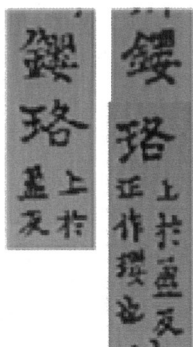 鑍珞
上於
盈反
鑍珞
上於盈反
正作瓔也